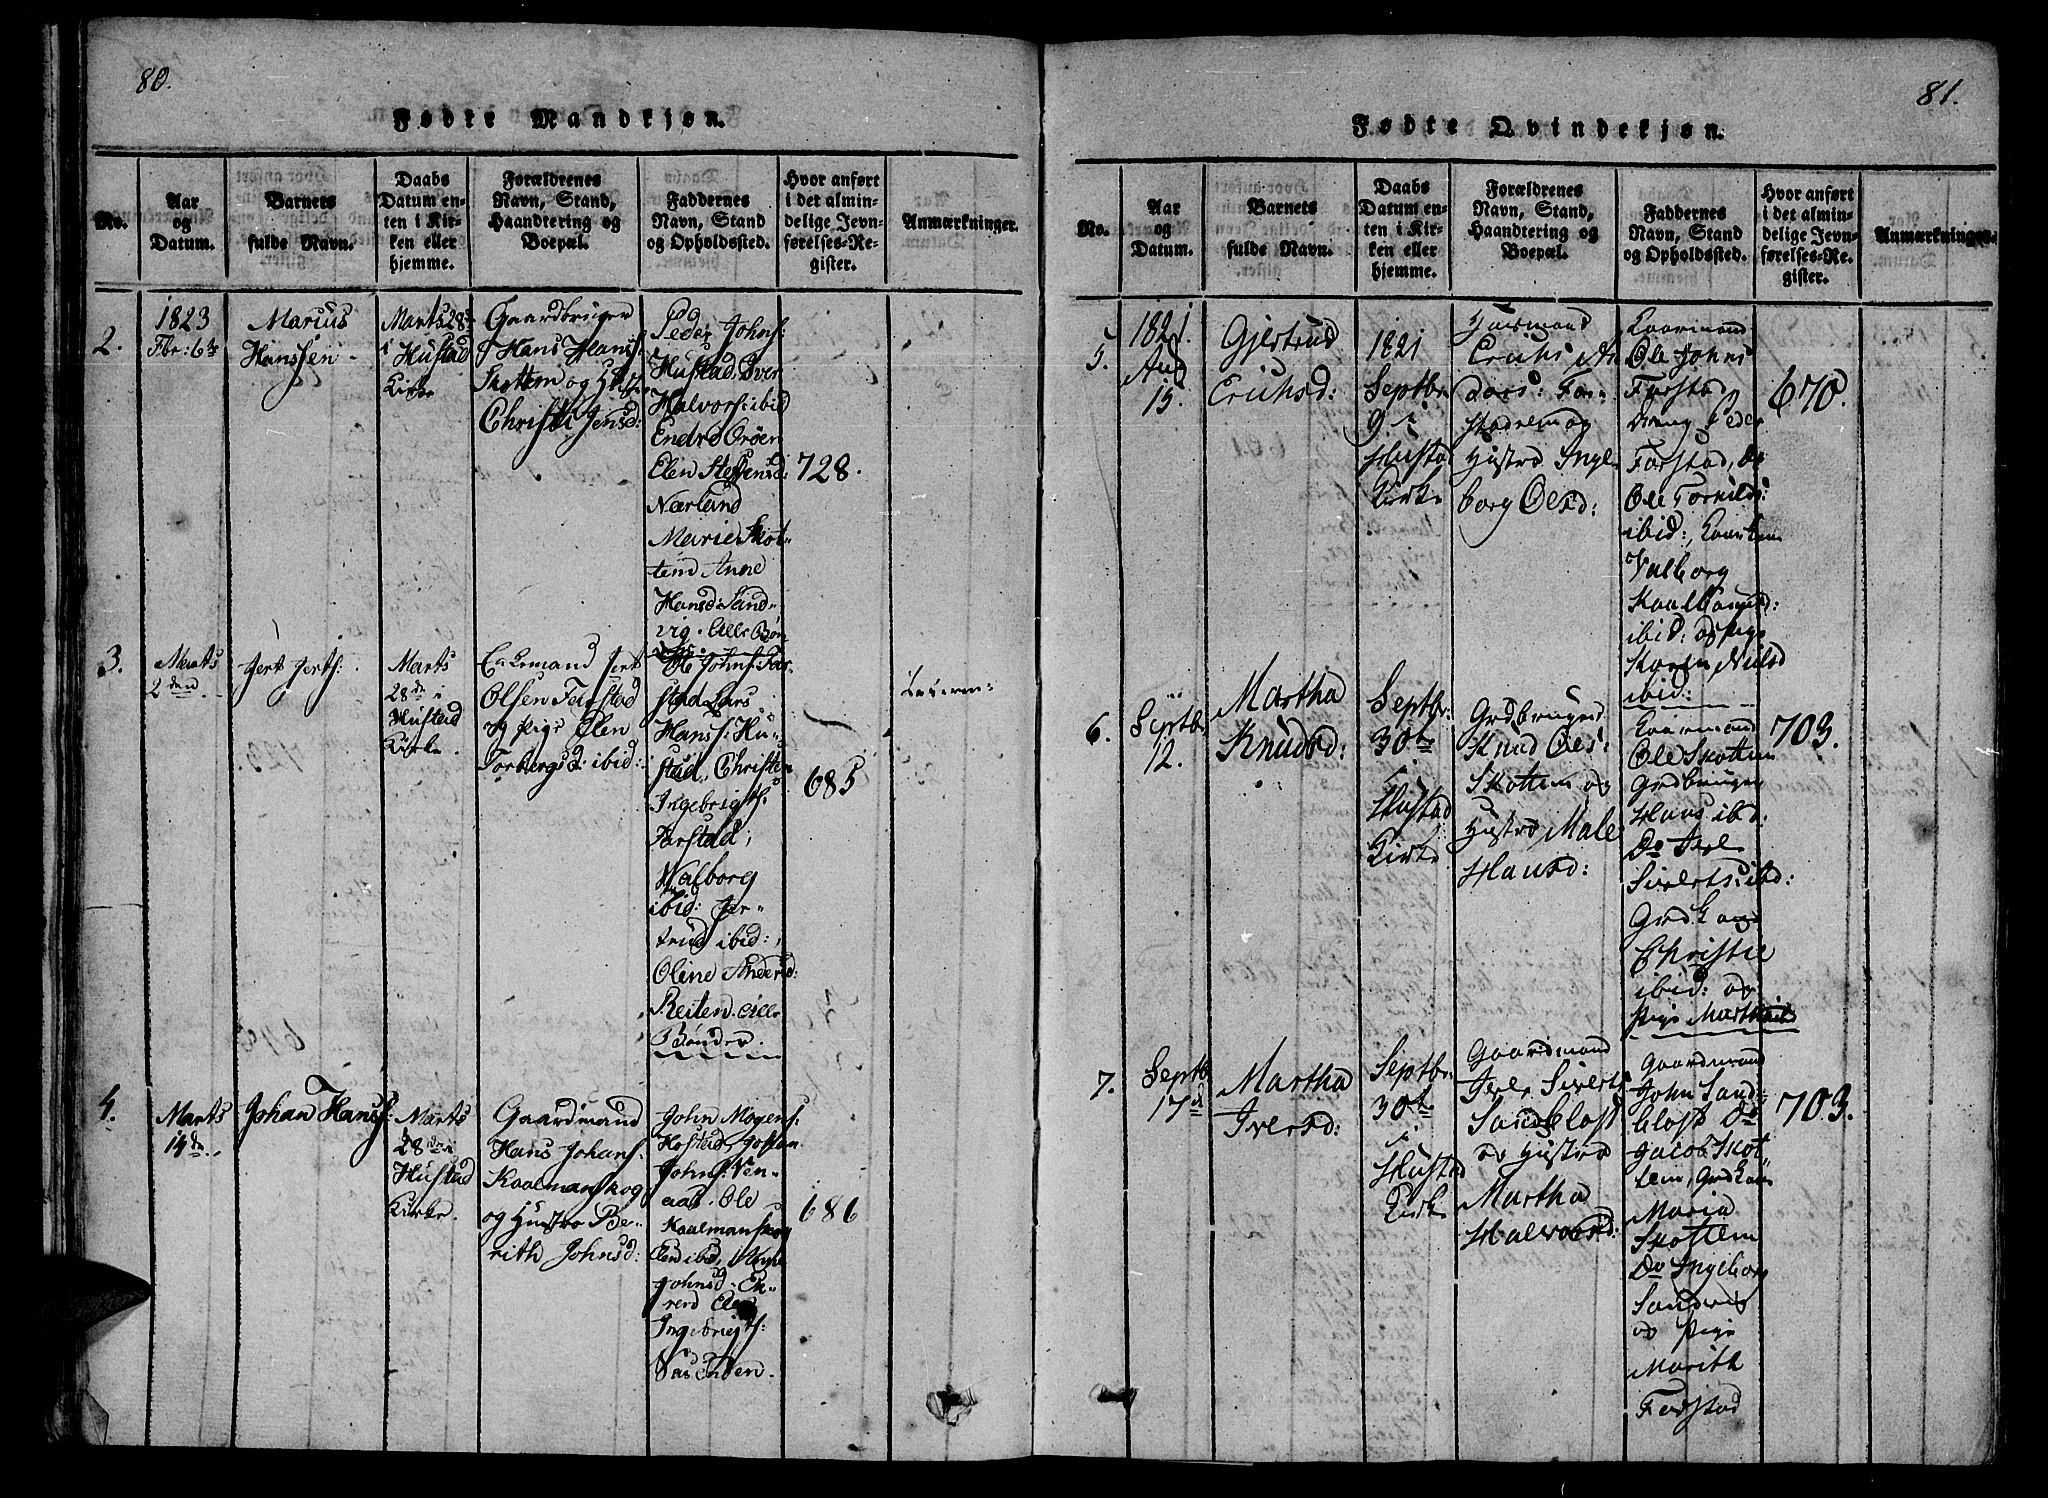 80.
Fødte Mandkjøn.
No.
Aar
og
Datum.
Barnets
fulde Navn.
Daabs
Datum en-
ten i Kir-
ken eller
hjemme.
Forældrenes
Navn, Stand,
Haandtering og
Boepæl.
Faddernes
Navn, Stand
og Opholdssted.
Hvor anført
i det almin-
delige Jevn-
førelses-Re-
gister.
Anmærkninger.
2.
1823
Fbr: 6te
Marius
Hanssen
Marts 28
i Hustad
Kirke
Gaardbruger
Hans Hans:
Skottem og Hustr
Christi Jensd:
Peder Johns:
Hustad Iver
Halvors: ibid
Endre Orøen
Elen Steffensd:
Nærland
Marie Skot-
tem Anne
Hansd: Sand-
vig. Alle Bøn-
728.
3.
Marts
2den
Jert Jerts:
Marts
28de i
Hustad
Kirke.
Jert
Olsen Farstad
og Pige Elen
Torbergsd: ibid:
Ole Johns: Far-
stad Lars
Hans: Hu-
stad, Christen
Ingebrigts:
Farstad;
Walborg
ibid: Jer-
trud ibid:,
Oline Andersd:
Reiten. Alle
Bønder.
685
4.
Marts
14de
Johan Hans:
Marts
28de i
Hustad
Kirke.
Gaardmand
Hans Johans:
Kaalmanskog
og Hustro Be-
rith Johnsd:
John Mogens:
Hostad, Jostan
Johns: Ven-
aas. Ole
Kaalmanskog
Elen ibid, Anne
Johnsd: Ek-
rerd Elen
Ingebrigts:
686
81.
Fødte Qvindekjøn.
No.
Aar
og
Datum.
Barnets
fulde Navn.
Daabs
Datum en-
ten i Kir-
ken eller
hjemme.
Forældrenes
Navn, Stand,
Haandtering og
Boepæl.
Faddernes
Navn, Stand
og Opholdssted.
Hvor anført
i det almin-
delige Jevn-
førelses-Re-
gister.
Anmærkninger.
5.
1821.
Aug
15.
Gjertrud
Erichsd:
1821
Septbr
9 i
Hustad
Kirke
Huusmand
Erichs An
ders: Far-
stadrem og
Hustro Inge
borg Olesd:
Ole Johns
Farstad
Dreng Peder
Farstad, Do
Ole Torkilds:
ibid:,
Valborg
ibid: og Pige
Karen Nielsd
ibid:
670.
6.
Septbr
12.
Martha
Knudsd:
Septbr:
30te
i
Hustad
Kirke
Grdbruger
Knud Ols:
Skottem og
Hustro Male
Hansd:
Ole Skottem
Grdbruger
Hans ibd:
Do Iver
Siverts: ibd:
Grdkone
Christie
ibid: og
Pige Martha ibd
703.
7.
Septb.
17d
Martha
Iversd:
Septbr:
30te
i
Hustad
Kirke
Gaardmand
Iver Siverts
Sandblost
og Hustro
Martha
Halvorsd:
Gaardmand
John Sand-
blost Do
Jacob Skot-
tem, Grdkone
Maria
Skottem
Do Ingeborg
Sandvig
og Pige
Marith
Farstad
703.